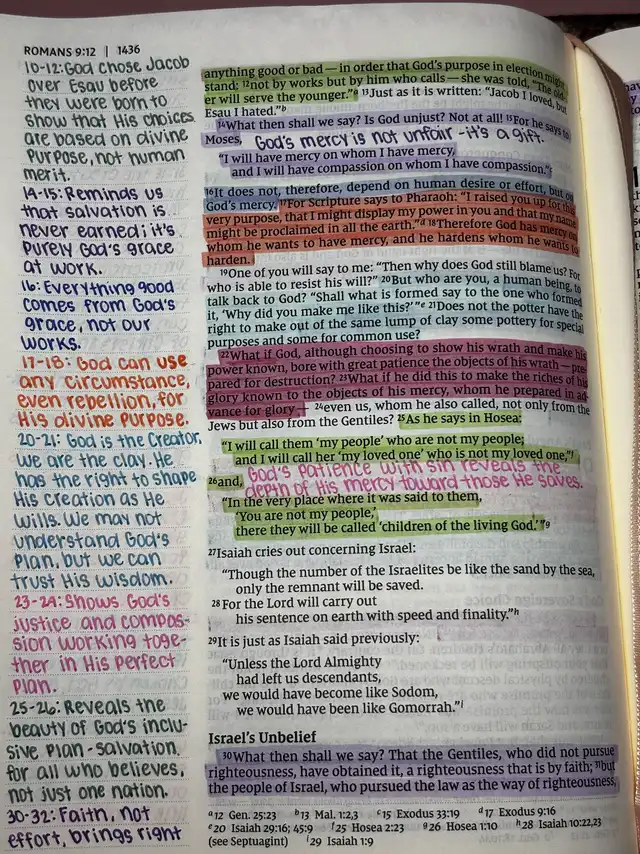 ROMANS 9:12 | 1436
10-12: God chose Jacob
over Esau before
they were born to
show that His choices
are based on divine
purpose, not human
merit.
14-15: Reminds us
that salvation is
never earned; it's
purely God's grace
at work.
16: Everything good
comes from God's
grace, not our
works.
17-18: God can use
any circumstance,
even rebellion, for
His divine purpose.
20-21: God is the Creator,
we are the clay. He
has the right to shape
His creation as He
wills. We may not
understand God's
plan, but we can
trust His wisdom.
23-24: Shows God's
justice and compas-
sion working toge-
ther in His perfect
plan.
25-26: Reveals the
beauty of God's inclu-
sive plan - salvation
for all who believes,
not just one nation.
30-32: Faith, not
effort, brings right
anything good or bad — in order that God's purpose in election might
stand: 12not by works but by him who calls — she was told, "The old-
er will serve the younger."a 13Just as it is written: "Jacob I loved, but
Esau I hated."b
14What then shall we say? Is God unjust? Not at all! 15For he says to
Moses,
God's mercy is not unfair - it's a gift.
"I will have mercy on whom I have mercy,
and I will have compassion on whom I have compassion."c
16It does not, therefore, depend on human desire or effort, but on
God's mercy. 17For Scripture says to Pharaoh: "I raised you up for this
very purpose, that I might display my power in you and that my name
might be proclaimed in all the earth."d 18Therefore God has mercy on
whom he wants to have mercy, and he hardens whom he wants to
harden.
19One of you will say to me: "Then why does God still blame us? For
who is able to resist his will?" 20But who are you, a human being, to
talk back to God? "Shall what is formed say to the one who formed
it, 'Why did you make me like this?' "e 21Does not the potter have the
right to make out of the same lump of clay some pottery for special
purposes and some for common use?
22What if God, although choosing to show his wrath and make his
power known, bore with great patience the objects of his wrath — pre-
pared for destruction? 23What if he did this to make the riches of his
glory known to the objects of his mercy, whom he prepared in ad-
vance for glory — 24even us, whom he also called, not only from the
Jews but also from the Gentiles? 25As he says in Hosea:
"I will call them 'my people' who are not my people;
and I will call her 'my loved one' who is not my loved one,"f
26and,
God's patience with sin reveals the
depth of His mercy toward those He saves.
"In the very place where it was said to them,
'You are not my people,'
there they will be called 'children of the living God.' "g
27Isaiah cries out concerning Israel:
"Though the number of the Israelites be like the sand by the sea,
only the remnant will be saved.
28For the Lord will carry out
his sentence on earth with speed and finality."h
29It is just as Isaiah said previously:
"Unless the Lord Almighty
had left us descendants,
we would have become like Sodom,
we would have been like Gomorrah."i
Israel's Unbelief
30What then shall we say? That the Gentiles, who did not pursue
righteousness, have obtained it, a righteousness that is by faith; 31but
the people of Israel, who pursued the law as the way of righteousness,
a12 Gen. 25:23 b13 Mal. 1:2,3 c15 Exodus 33:19 d17 Exodus 9:16
e20 Isaiah 29:16; 45:9 f25 Hosea 2:23 g26 Hosea 1:10 h28 Isaiah 10:22,23
(see Septuagint) i29 Isaiah 1:9